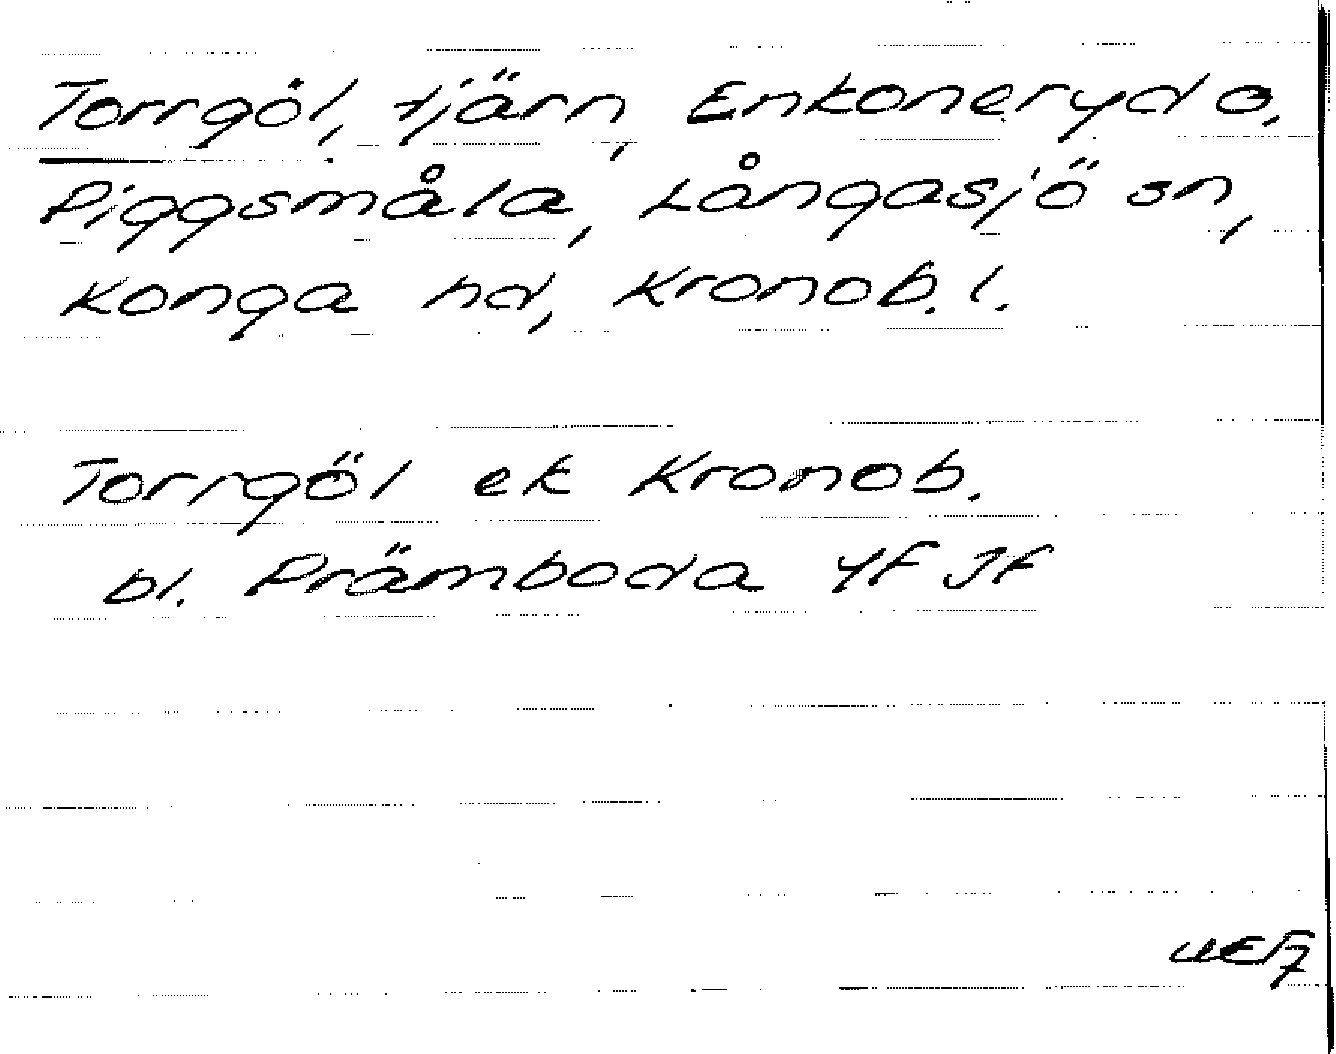 Torrgöl, tjärn, Enkoneryd o.
Piggsmåla, Långasjö sn,
Konga hd, Kronob. l.
Torrgöl ek Kronob.
bl. Främboda yf Jf